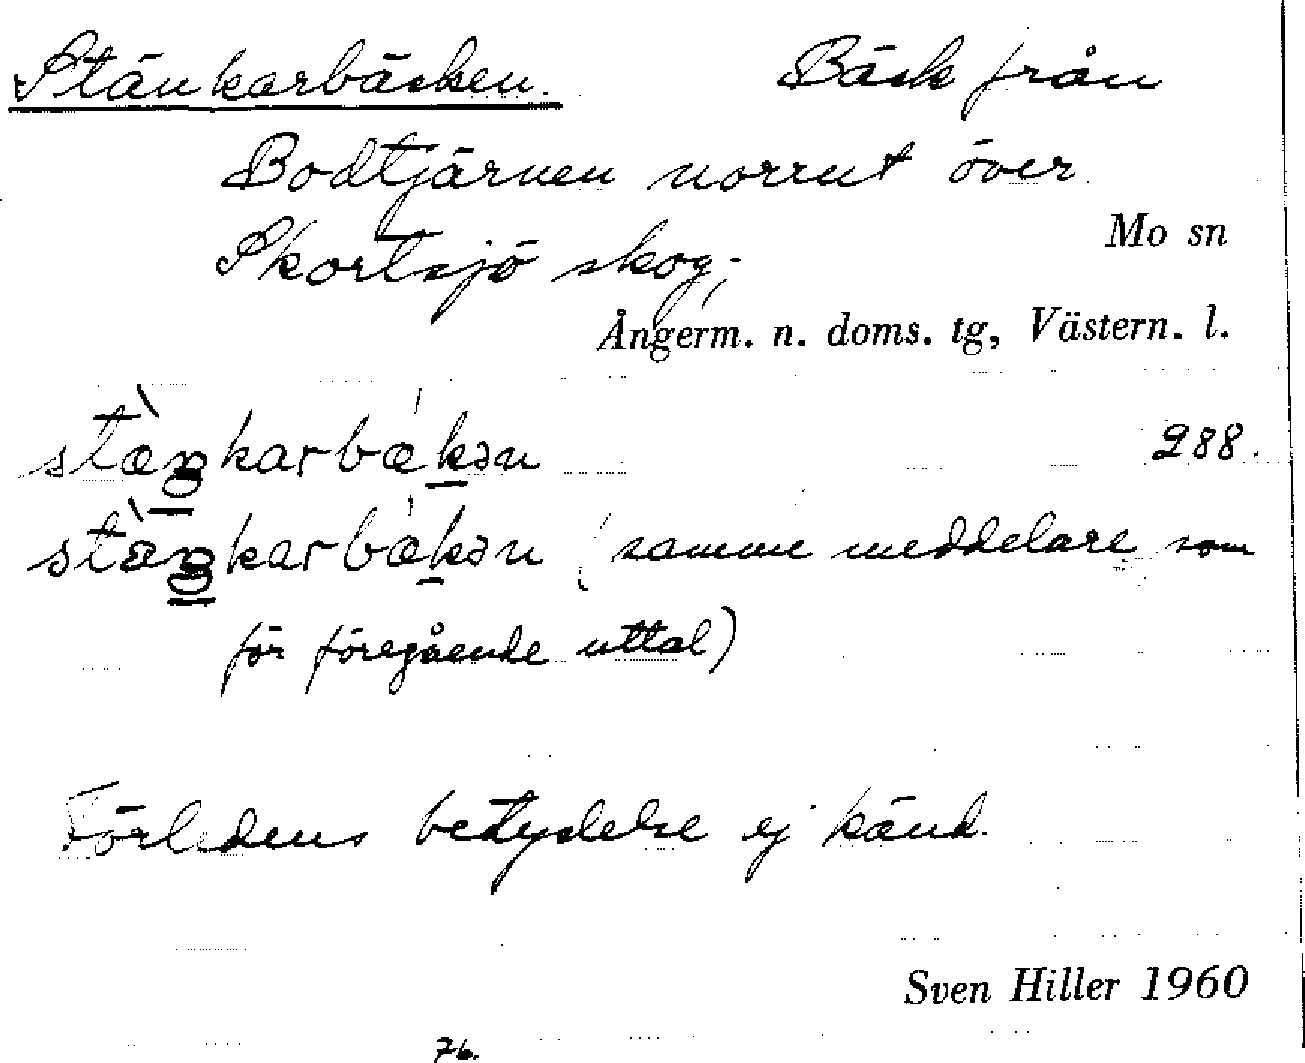 Stänkarbäcken. Bäck från
Bodtjärnen norrut över
Skortsjö skog;
Mo sn
Ångerm. n. doms. tg, Västern. l.
stæ̀ŋkarbǽkən 288.
stàŋkarbǽkən (samme meddelare som
för föregående uttal)
Förledens betydelse ej känd.
Sven Hiller 1960
76.